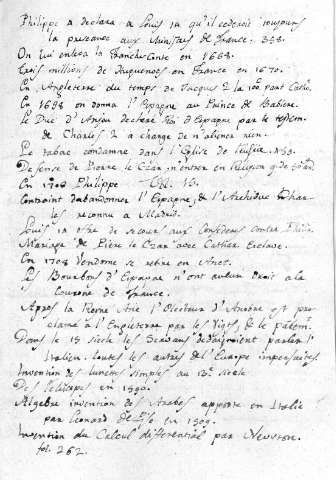 Philippe 4 declara a Louis 14 qu'il cederoit toujours
la preseance aux Ministres de France. 358.
On lui enleva la Franche Comté en 1668.
trois millions de Huguenots en France en 1670.
En Angleterre du temps de Jacques 2 la 100 part Catho.
En 1698 on donna l'Espagne au Prince de Baviere.
Le Duc d'Anjou declaré Roi d'Espagne par le testam.
de Charles 2 a charge de n'aliener rien.
Le tabac condamné dans l'Eglise de
Defense de Pierre le Czar n'entrer en Religion
En Philippe
Contraint d'abandonner l'Espagne, & l'Archiduc Char-
les reconnu a Madrid.
Louis 14 ofre de secours aux Confederés contre Philip.
Mariage de Pière le Czar avec Cather. Esclave.
En 1708 Vendome se retire en Anet.
Les Bourbons d'Espagne n'ont aucun droit a la
Courone de France.
Apres la Reine Ane l'Electeur d'Anovre est pro-
clamé a l'Engleterre par les Vigts, & le patem.
Dans le 13 siecle les Scavans dedaignoient parler l'
Italien. toutes les autres de l'Europe imparfaites
Invention des lunetes simples au 13e siecle
Des telescopes en 1590.
Algebre invention des Arabes apporté en Italie
par Leonard de en
Invention du Calcul diferentiel par Newton.
fol. 262.